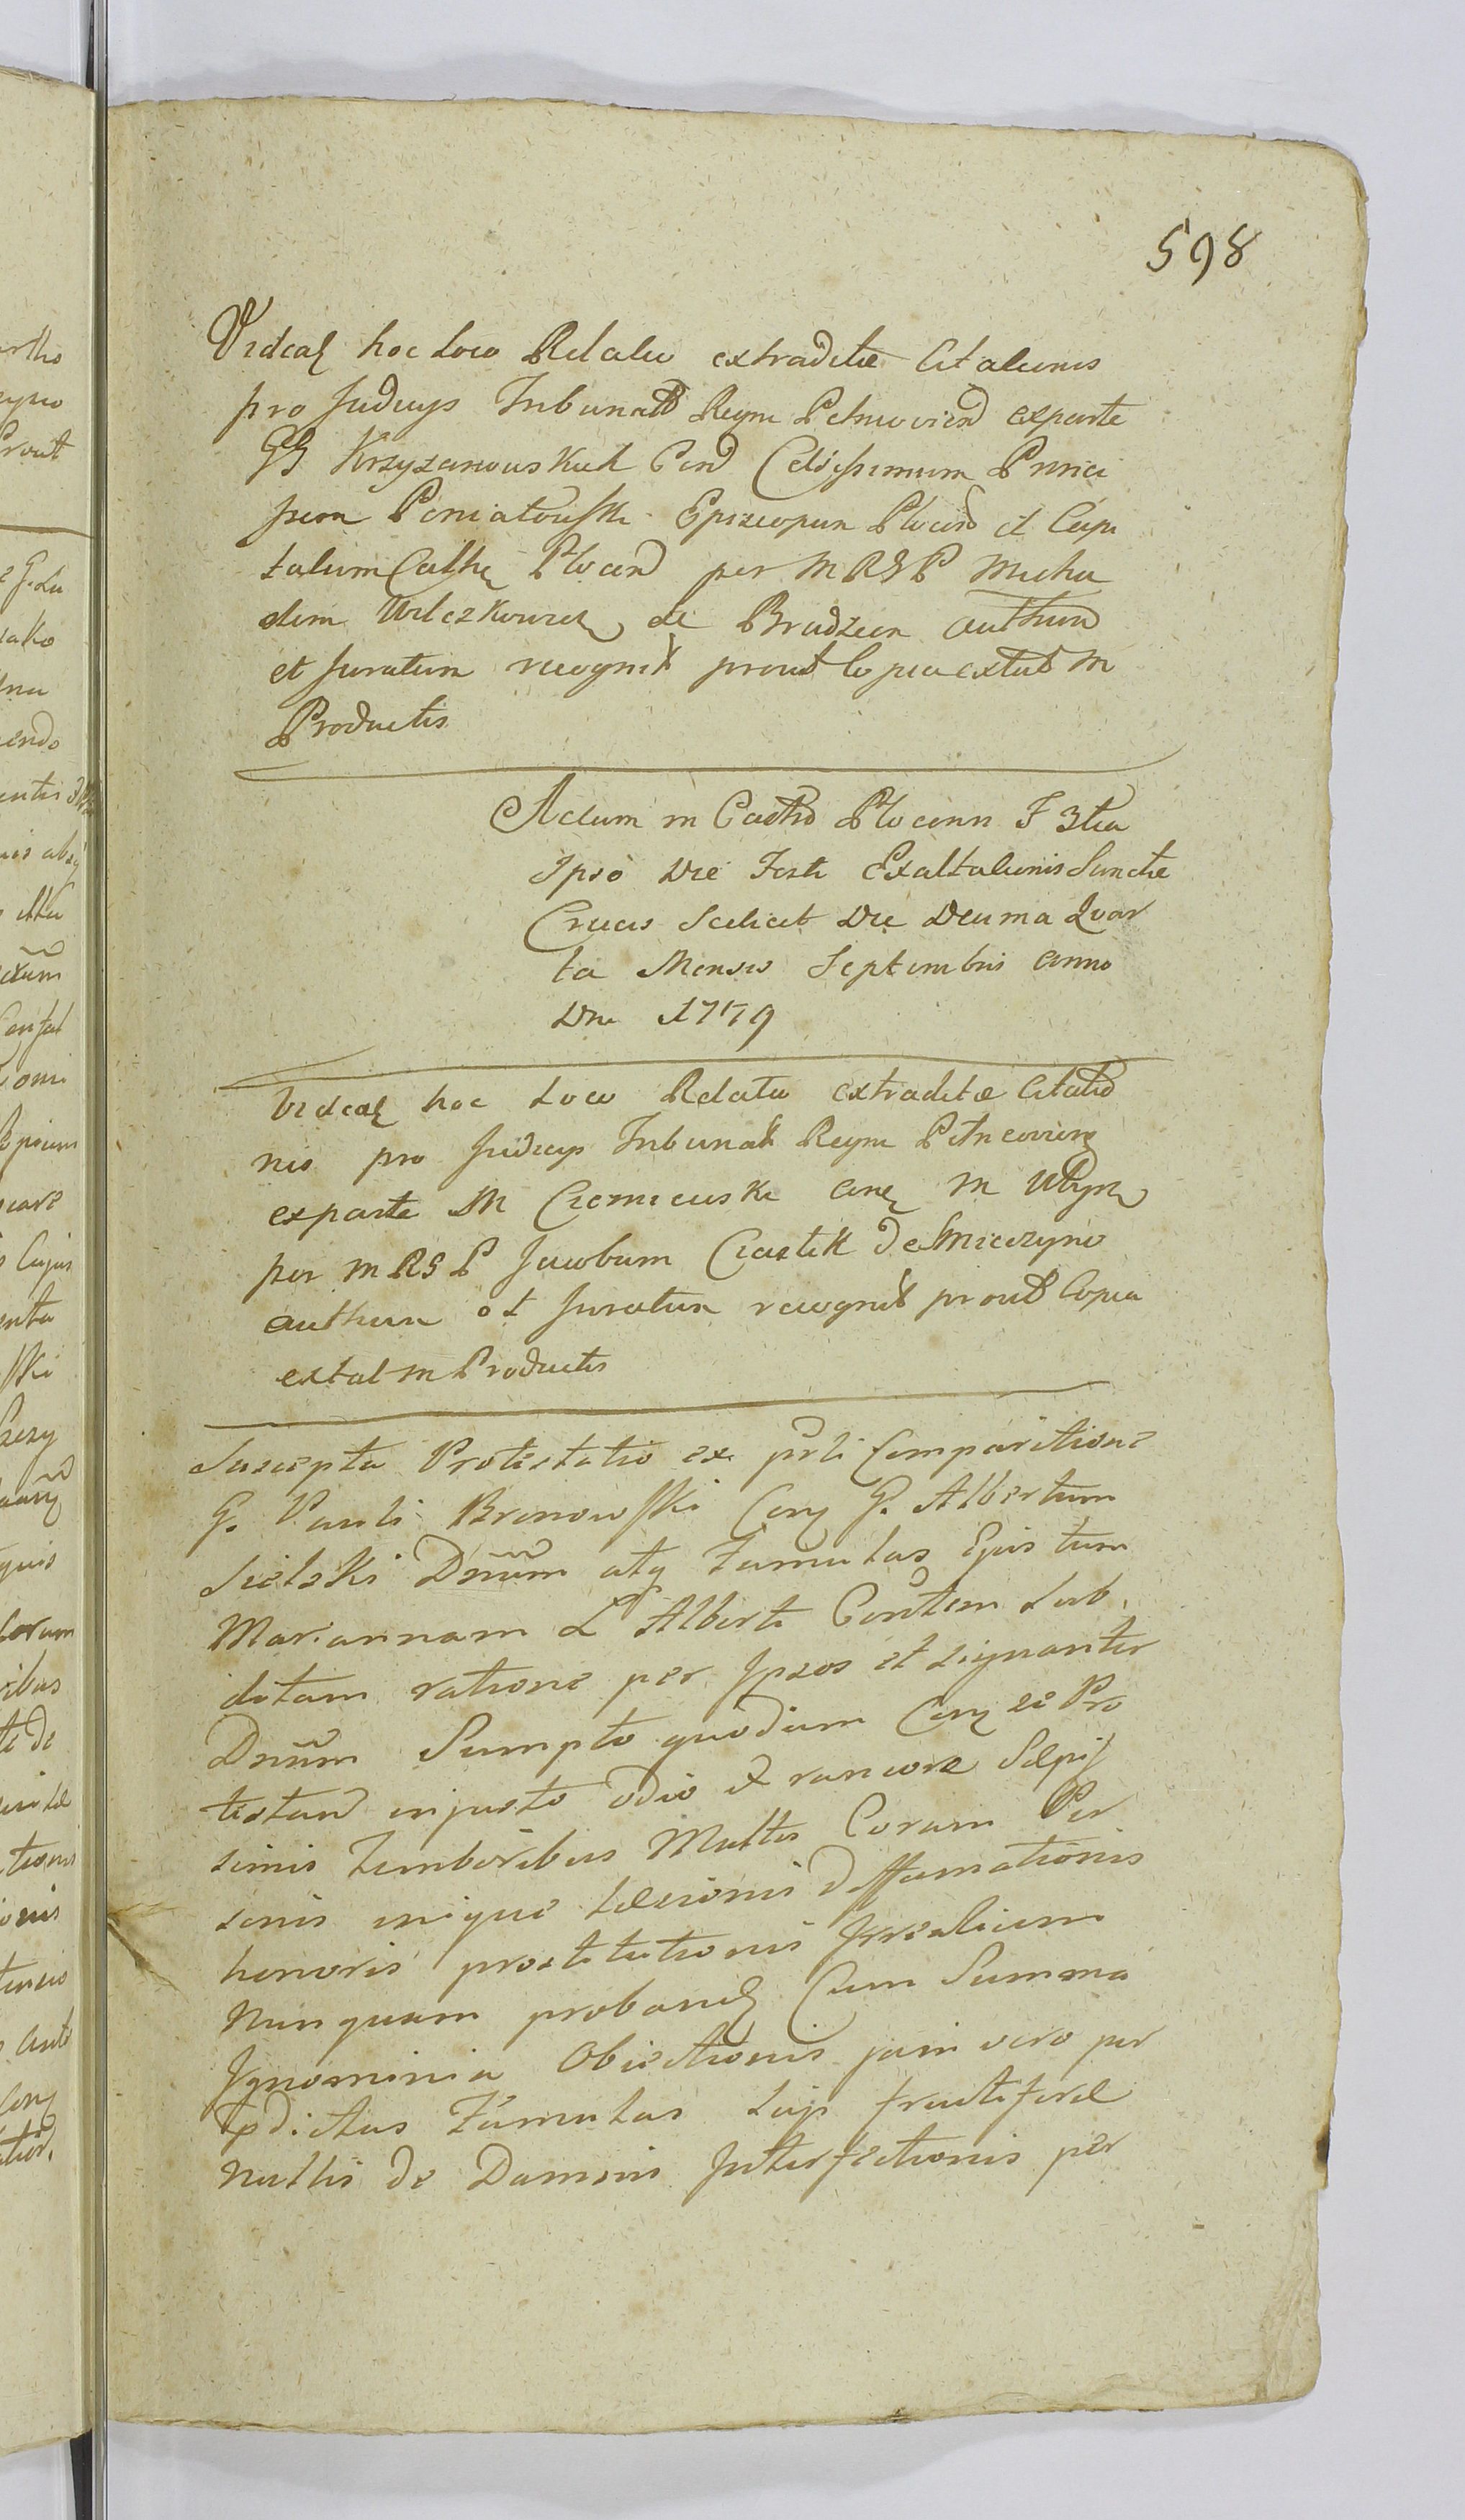 598
Videat hoc loco Relatio extraditæ Citationis
pro Judicijs Tribunalis Regni Petricovien exparte
GG Krzyzanowskich Con Celsissimum Princi
pem Poniatowski Episcopum Plocen et Capi
tulum Cathe Plocen per MRSP Micha
elem Wilczkowicz de Brudzen authen
et Juratum recognit prout Copia extat in
Productis
Actum in Castro Plocenn F 3tia
Ipso Die Festi Exaltationis Sanctæ
Crucis Scilicet Die Decima Quar
ta Mensis Septembris Anno
Dni 1779
Videat hoc Loco Relatio extraditæ Citatio
nis pro Judicijs Tribunal Regni Petricovien
exparte M Ciemniewski con M
per MRSP Jacobum Ciastek de Smieczyno
authen et Juratum recognit prout Copia
extat in Productis
Suscepta Protestatio ex prti Comparitione
G. Pauli Bronowsski Con G. Albertum
Sielski Dnum atq Famulas Ejus tum
Mariannam L Alberti Contem Sub
ditam ratione per Ipsos et signanter
Dnum Sumpto quodam Con se Pro
testan injusto odio et rancore Sæpis
simis temboribus Multis Coram Per
sonis inique læsionis diffamationis
honoris prostitutionis Irrealium
nunquam proband Cum Summa
Ignominia Obiectionis jam vero per
Pdictas Famulas frutiferæ
nullis de Damnis Interfectionis per